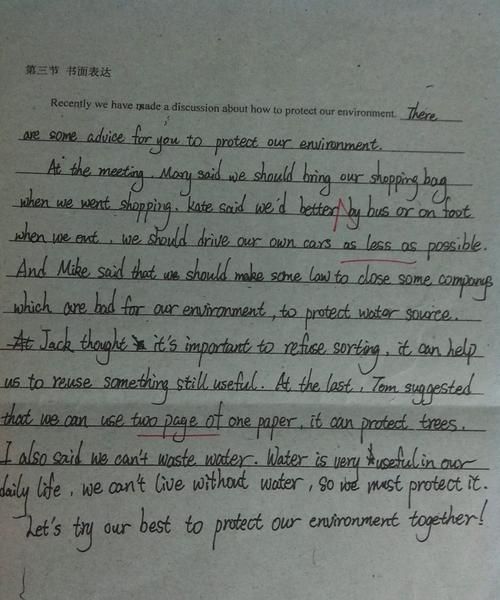 第三节 书面表达
Recently we have made a discussion about how to protect our environment. There
are some advice for you to protect our environment.
At the meeting, Mary said we should bring our shopping bag
when we went shopping. Kate said we'd better by bus or on foot
when we out, we should drive our own cars as less as possible.
And Mike said that we should make some law to close some companys
which are bad for our environment, to protect water source.
Jack thought it's important to refuse sorting, it can help
us to reuse something still useful. At the last, Tom suggested
that we can use two page of one paper, it can protect trees.
I also said we can't waste water. Water is very useful in our
daily life, we can't live without water, so we must protect it.
Let's try our best to protect our environment together!